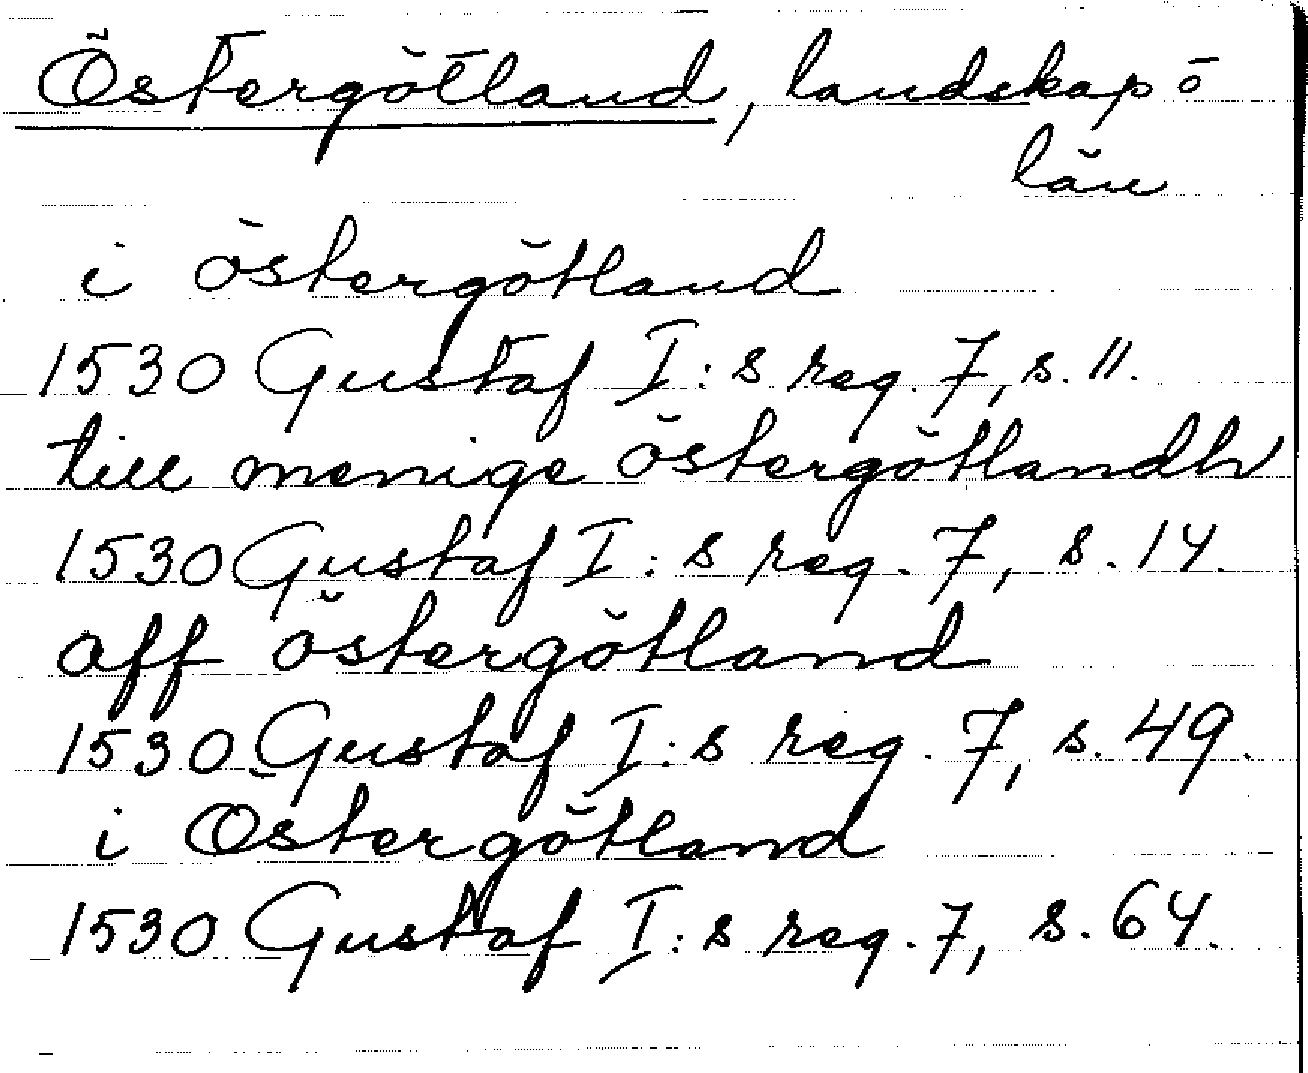 Östergötland, landskap o
län
i östergötland
1530 Gustaf I:s reg. 7, s. 11.
till menige östergötlandh
1530 Gustaf I:s reg. 7, s. 14.
aff östergötland
1530 Gustaf I:s reg. 7, s. 49.
i Östergötland
1530 Gustaf I:s reg. 7, s. 64.